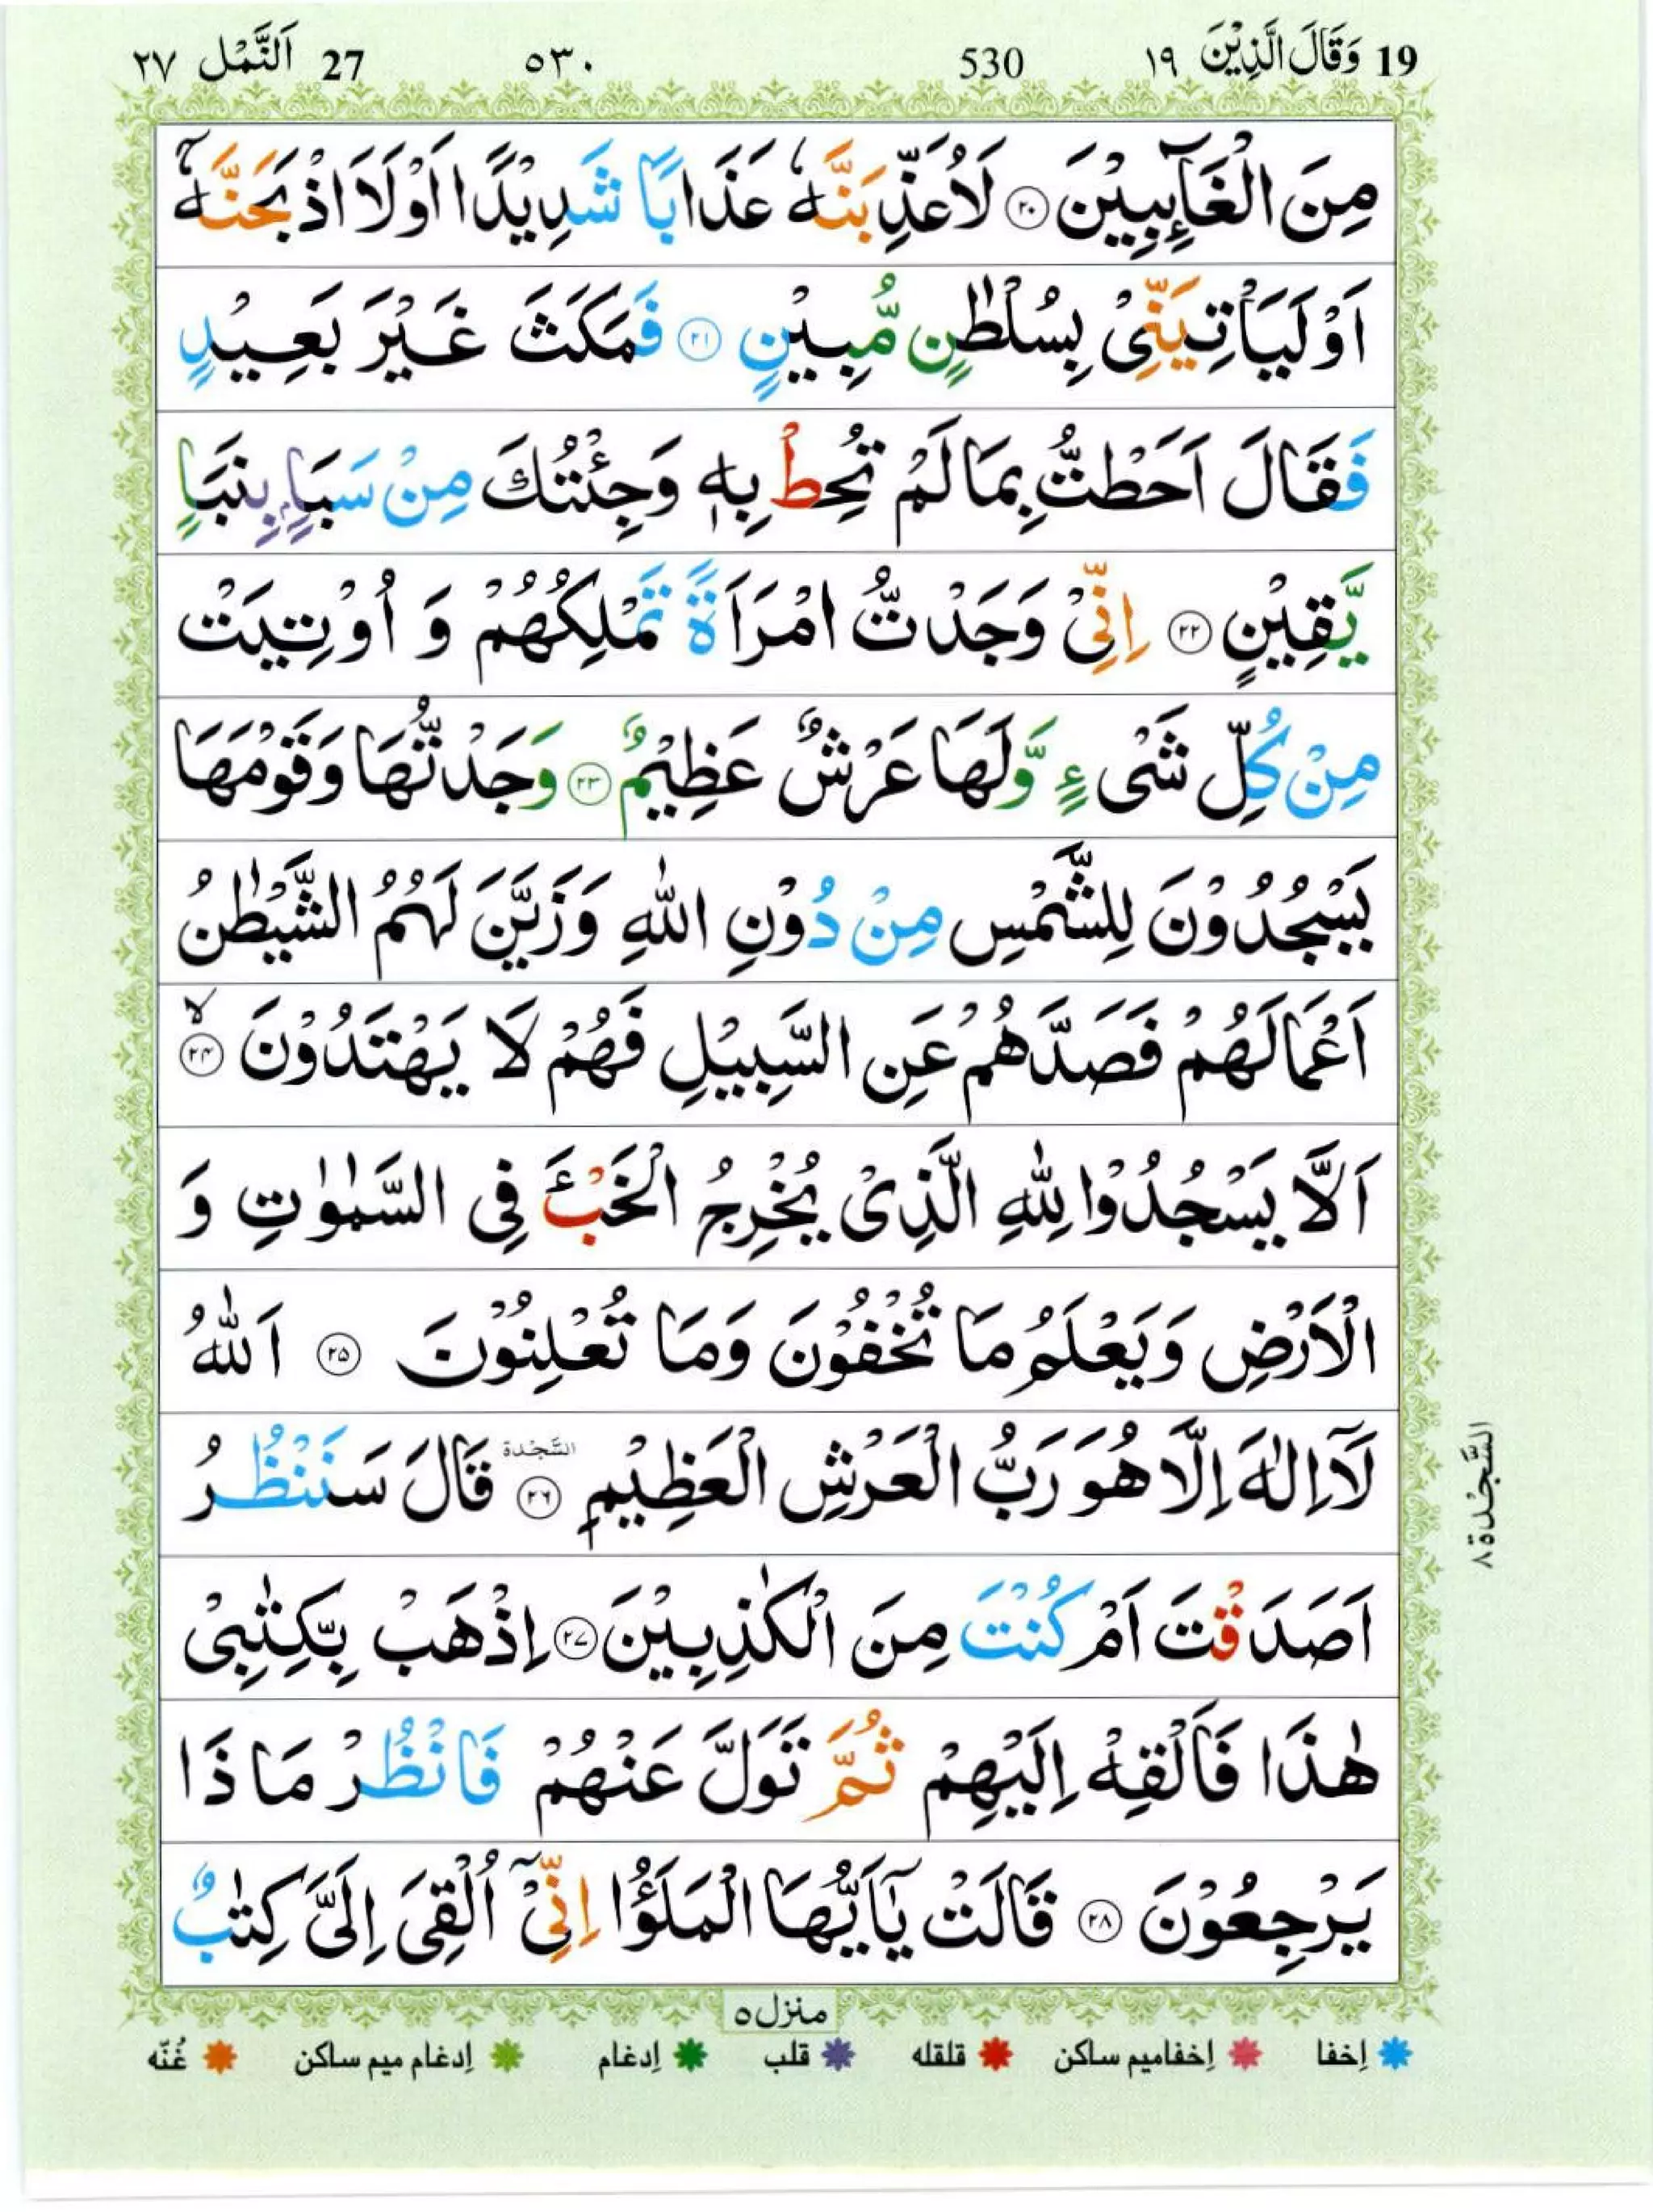 19 وَقَالَ الَّذِيْنَ ١٩ 530 ٥٣٠ 27 اَلنَّمْل ٢٧
مِنَ الْغَآىِٕبِيْنَ ۝٢٠ لَاُعَذِّبَنَّهٗ عَذَابًا شَدِيْدًا اَوْلَا۠اَذْبَحَنَّهٗۤ
اَوْلَيَاْتِيَنِّيْ بِسُلْطٰنٍ مُّبِيْنٍ ۝٢١ فَمَكَثَ غَيْرَ بَعِيْدٍ
فَقَالَ اَحَطْتُّ بِمَا لَمْ تُحِطْ بِهٖ وَجِئْتُكَ مِنْ سَبَاٍۭ بِنَبَاٍ
يَّقِيْنٍ ۝٢٢ اِنِّيْ وَجَدْتُّ امْرَاَةً تَمْلِكُهُمْ وَ اُوْتِيَتْ
مِنْ كُلِّ شَيْءٍ وَّلَهَا عَرْشٌ عَظِيْمٌ ۝٢٣ وَجَدْتُّهَا وَقَوْمَهَا
يَسْجُدُوْنَ لِلشَّمْسِ مِنْ دُوْنِ اللّٰهِ وَزَيَّنَ لَهُمُ الشَّيْطٰنُ
اَعْمَالَهُمْ فَصَدَّهُمْ عَنِ السَّبِيْلِ فَهُمْ لَا يَهْتَدُوْنَ ۝٢٤ۙ
اَلَّا يَسْجُدُوْا لِلّٰهِ الَّذِيْ يُخْرِجُ الْخَبْءَ فِي السَّمٰوٰتِ وَ
الْاَرْضِ وَيَعْلَمُ مَا تُخْفُوْنَ وَمَا تُعْلِنُوْنَ ۝٢٥ اَللّٰهُ
لَاۤ اِلٰهَ اِلَّا هُوَ رَبُّ الْعَرْشِ الْعَظِيْمِ ۝٢٦ السَّجْدَة قَالَ سَنَنْظُرُ
اَصَدَقْتَ اَمْ كُنْتَ مِنَ الْكٰذِبِيْنَ ۝٢٧ اِذْهَبْ بِّكِتٰبِيْ
هٰذَا فَاَلْقِهْ اِلَيْهِمْ ثُمَّ تَوَلَّ عَنْهُمْ فَانْظُرْ مَاذَا
يَرْجِعُوْنَ ۝٢٨ قَالَتْ يٰۤاَيُّهَا الْمَلَؤُا اِنِّيْۤ اُلْقِيَ اِلَيَّ كِتٰبٌ
السَّجْدَة ٨
منزل ٥
إخفا إخفاميم ساكن قلقله قلب إدغام إدغام ميم ساكن غُنّه